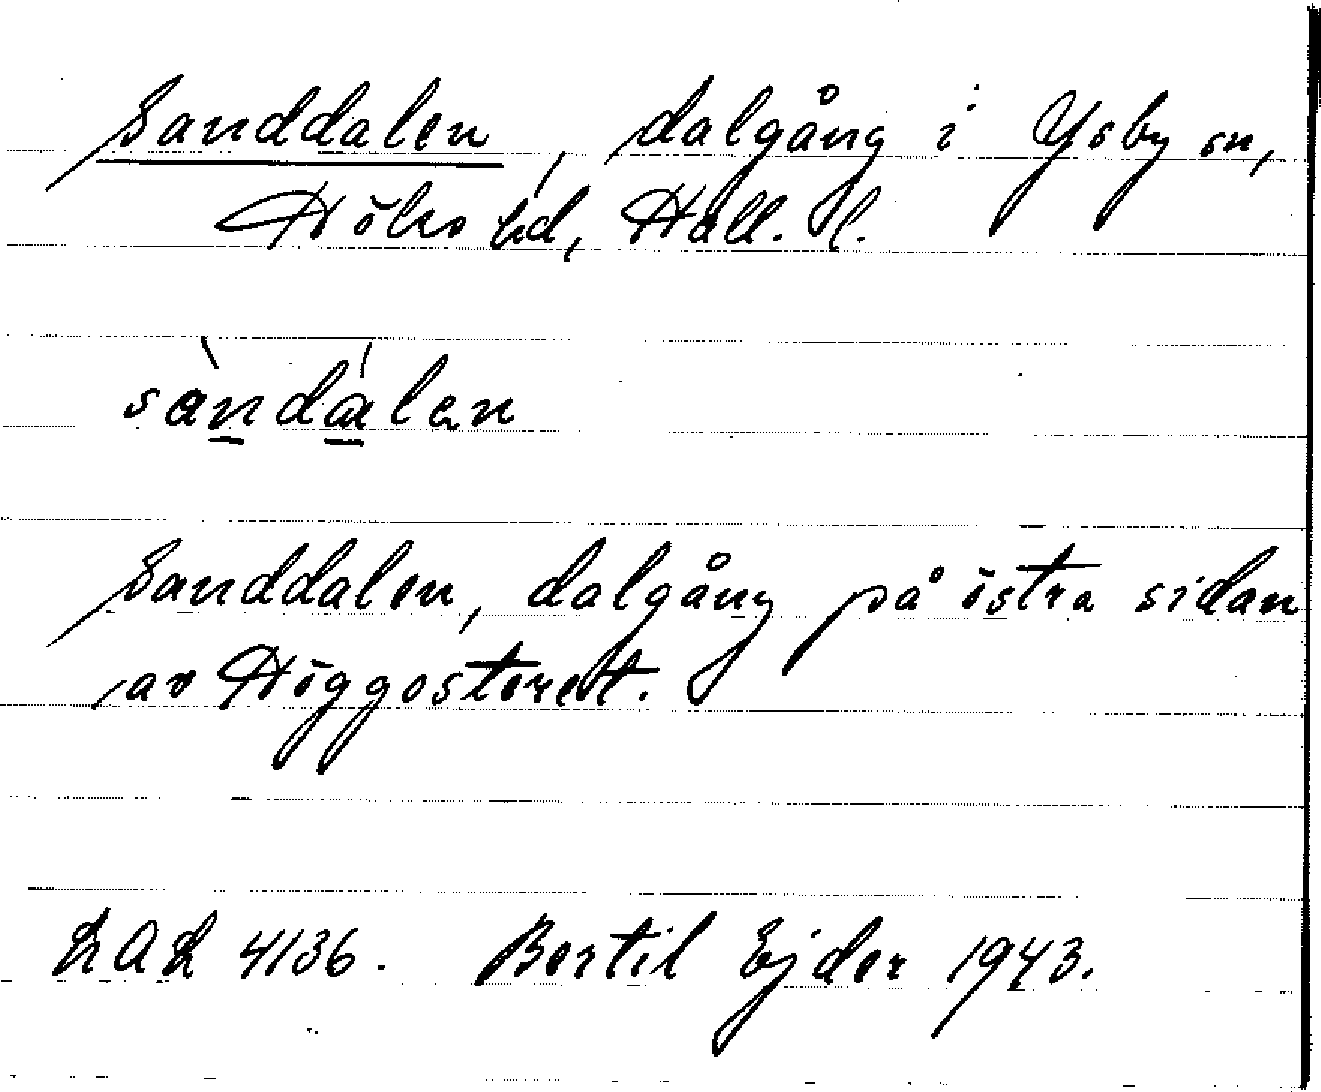 Sanddalen, dalgång i Ysby sn,
Höks hd, Hall. l.
sàndálen
Sanddalen, dalgång på östra sidan
av Höggosteret.
LAL 4136. Bertil Ejder 1943.